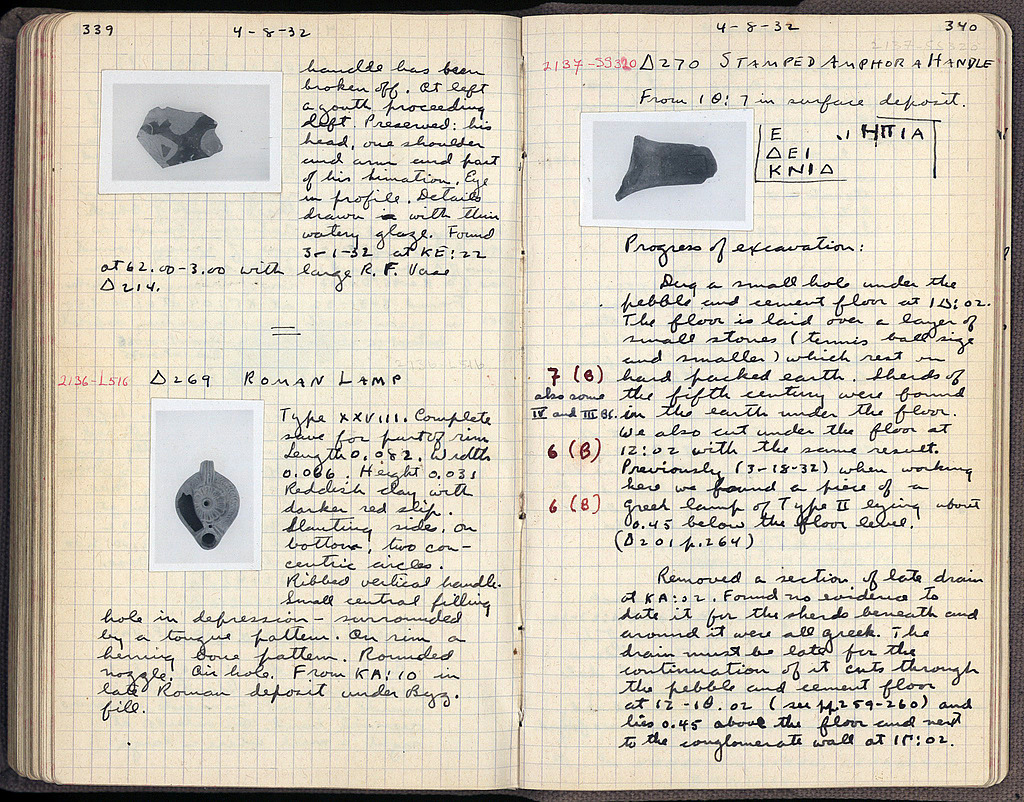 339
4-8-32
handle has been
broken off. At left
a youth proceeding
left. Preserved: his
head, one shoulder
and arm and part
of his himation. Eye
in profile. Details
drawn in with thin
watery glaze. Found
3-1-32 at KE:22
at 62.00-3.00 with large R.F. Vase
Δ214.
2136-L516 Δ269 ROMAN LAMP
Type XXVIII. Complete
save for part of rim
Length 0.082. Width
0.066. Height 0.031
Reddish clay with
darker red slip.
Slanting side, on
bottom, two con-
centric circles.
Ribbed vertical handle.
Small central filling
hole in depression - surrounded
by a tongue pattern. On rim a
herring bone pattern. Rounded
nozzle. Air hole. From KA:10 in
late Roman deposit under Byz.
fill.
4-8-32
340
2137-SS320
2137-SS320 Δ270 STAMPED AMPHORA HANDLE
From 1Θ:7 in surface deposit.
Ε ΗΠΙΑ
ΔΕΙ
ΚΝΙΔ
Progress of excavation:
Dug a small hole under the
pebble and cement floor at 1Δ:02.
The floor is laid over a layer of
small stones (tennis ball size
and smaller) which rest on
7 (B) hard packed earth. Sherds of
also some the fifth century were found
IV and III BC. in the earth under the floor.
We also cut under the floor at
6 (B) 12:02 with the same result.
Previously (3-18-32) when working
here we found a piece of a
6 (B) greek lamp of Type II lying about
0.45 below the floor level.
(Δ201 p.264)
Removed a section of late drain
at KA:02. Found no evidence to
date it for the sherds beneath and
around it were all greek. The
drain must be late for the
continuation of it cuts through
the pebble and cement floor
at 12-1Θ.02 (see pp259-260) and
lies 0.45 above the floor and next
to the conglomerate wall at 1Γ:02.